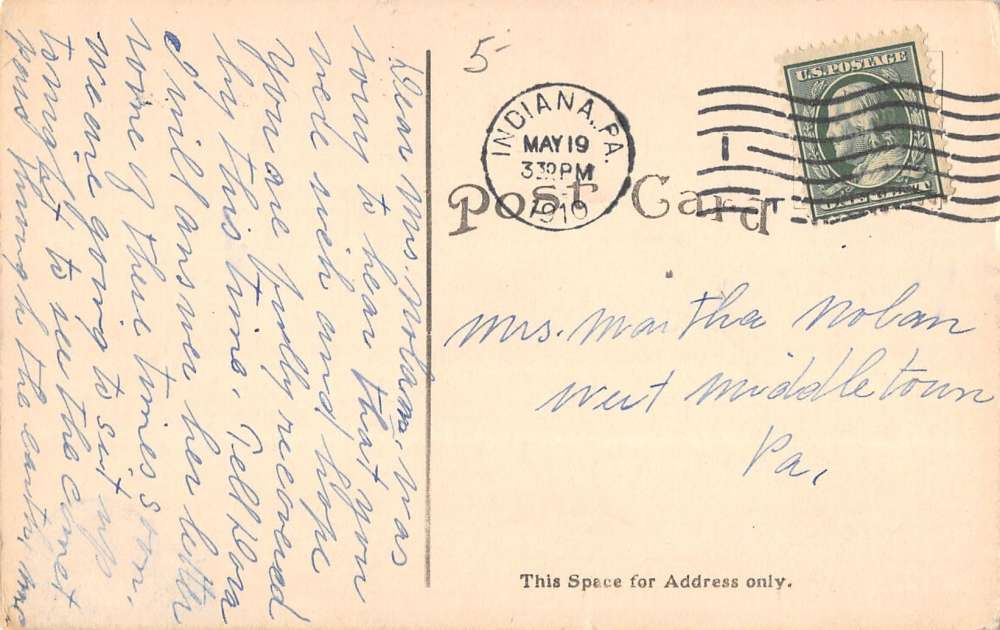 Dear Mrs. Nolan, was
sorry to hear that you
were sick and hope
you are fully recovered
by this time. Tell Flora
I will answer her letter
some of these times soon.
We are going to sit up
tonight to see the comet
pass through the earth.
5-
INDIANA, PA.
MAY 19
330 PM
1910
1
U.S. POSTAGE
Post Card
Mrs. Martha Nolan
West Middletown
Pa.
This Space for Address only.